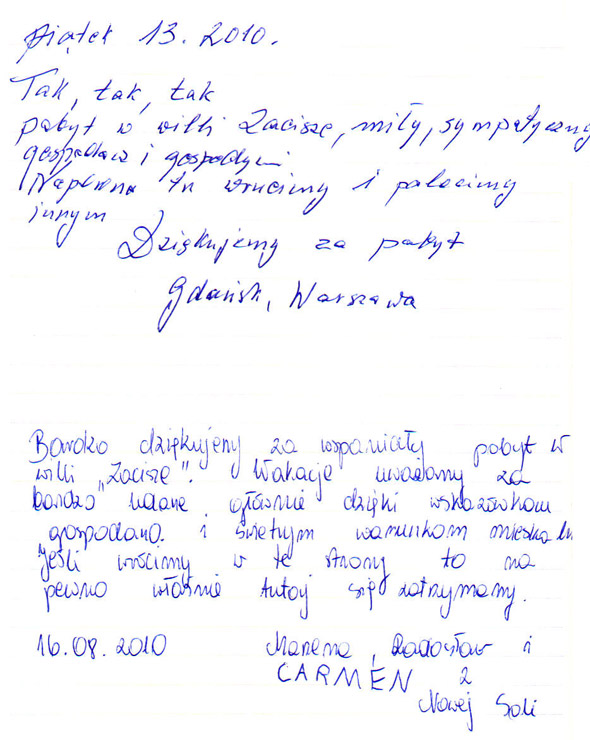 Piątek 13. 2010.
Tak, tak, tak
pobyt w willi Zacisze, miły, sympatyczny
gospodarz i gospodyni
Napewno tu wrucimy i polecimy
innym
Dziękujemy za pobyt
Gdańsk, Warszawa
Bardzo dziękujemy za wspaniały pobyt w
willi „Zacisze". Wakacje uważamy za
bardzo udane głównie dzięki wskazówkom
gospodarzy i świetnym warunkom mieszkaln
Jeśli wrócimy w te strony to na
pewno właśnie tutaj się zatrzymamy.
16.08.2010 Marzena, Radosław i
CARMEN z
Nowej Soli